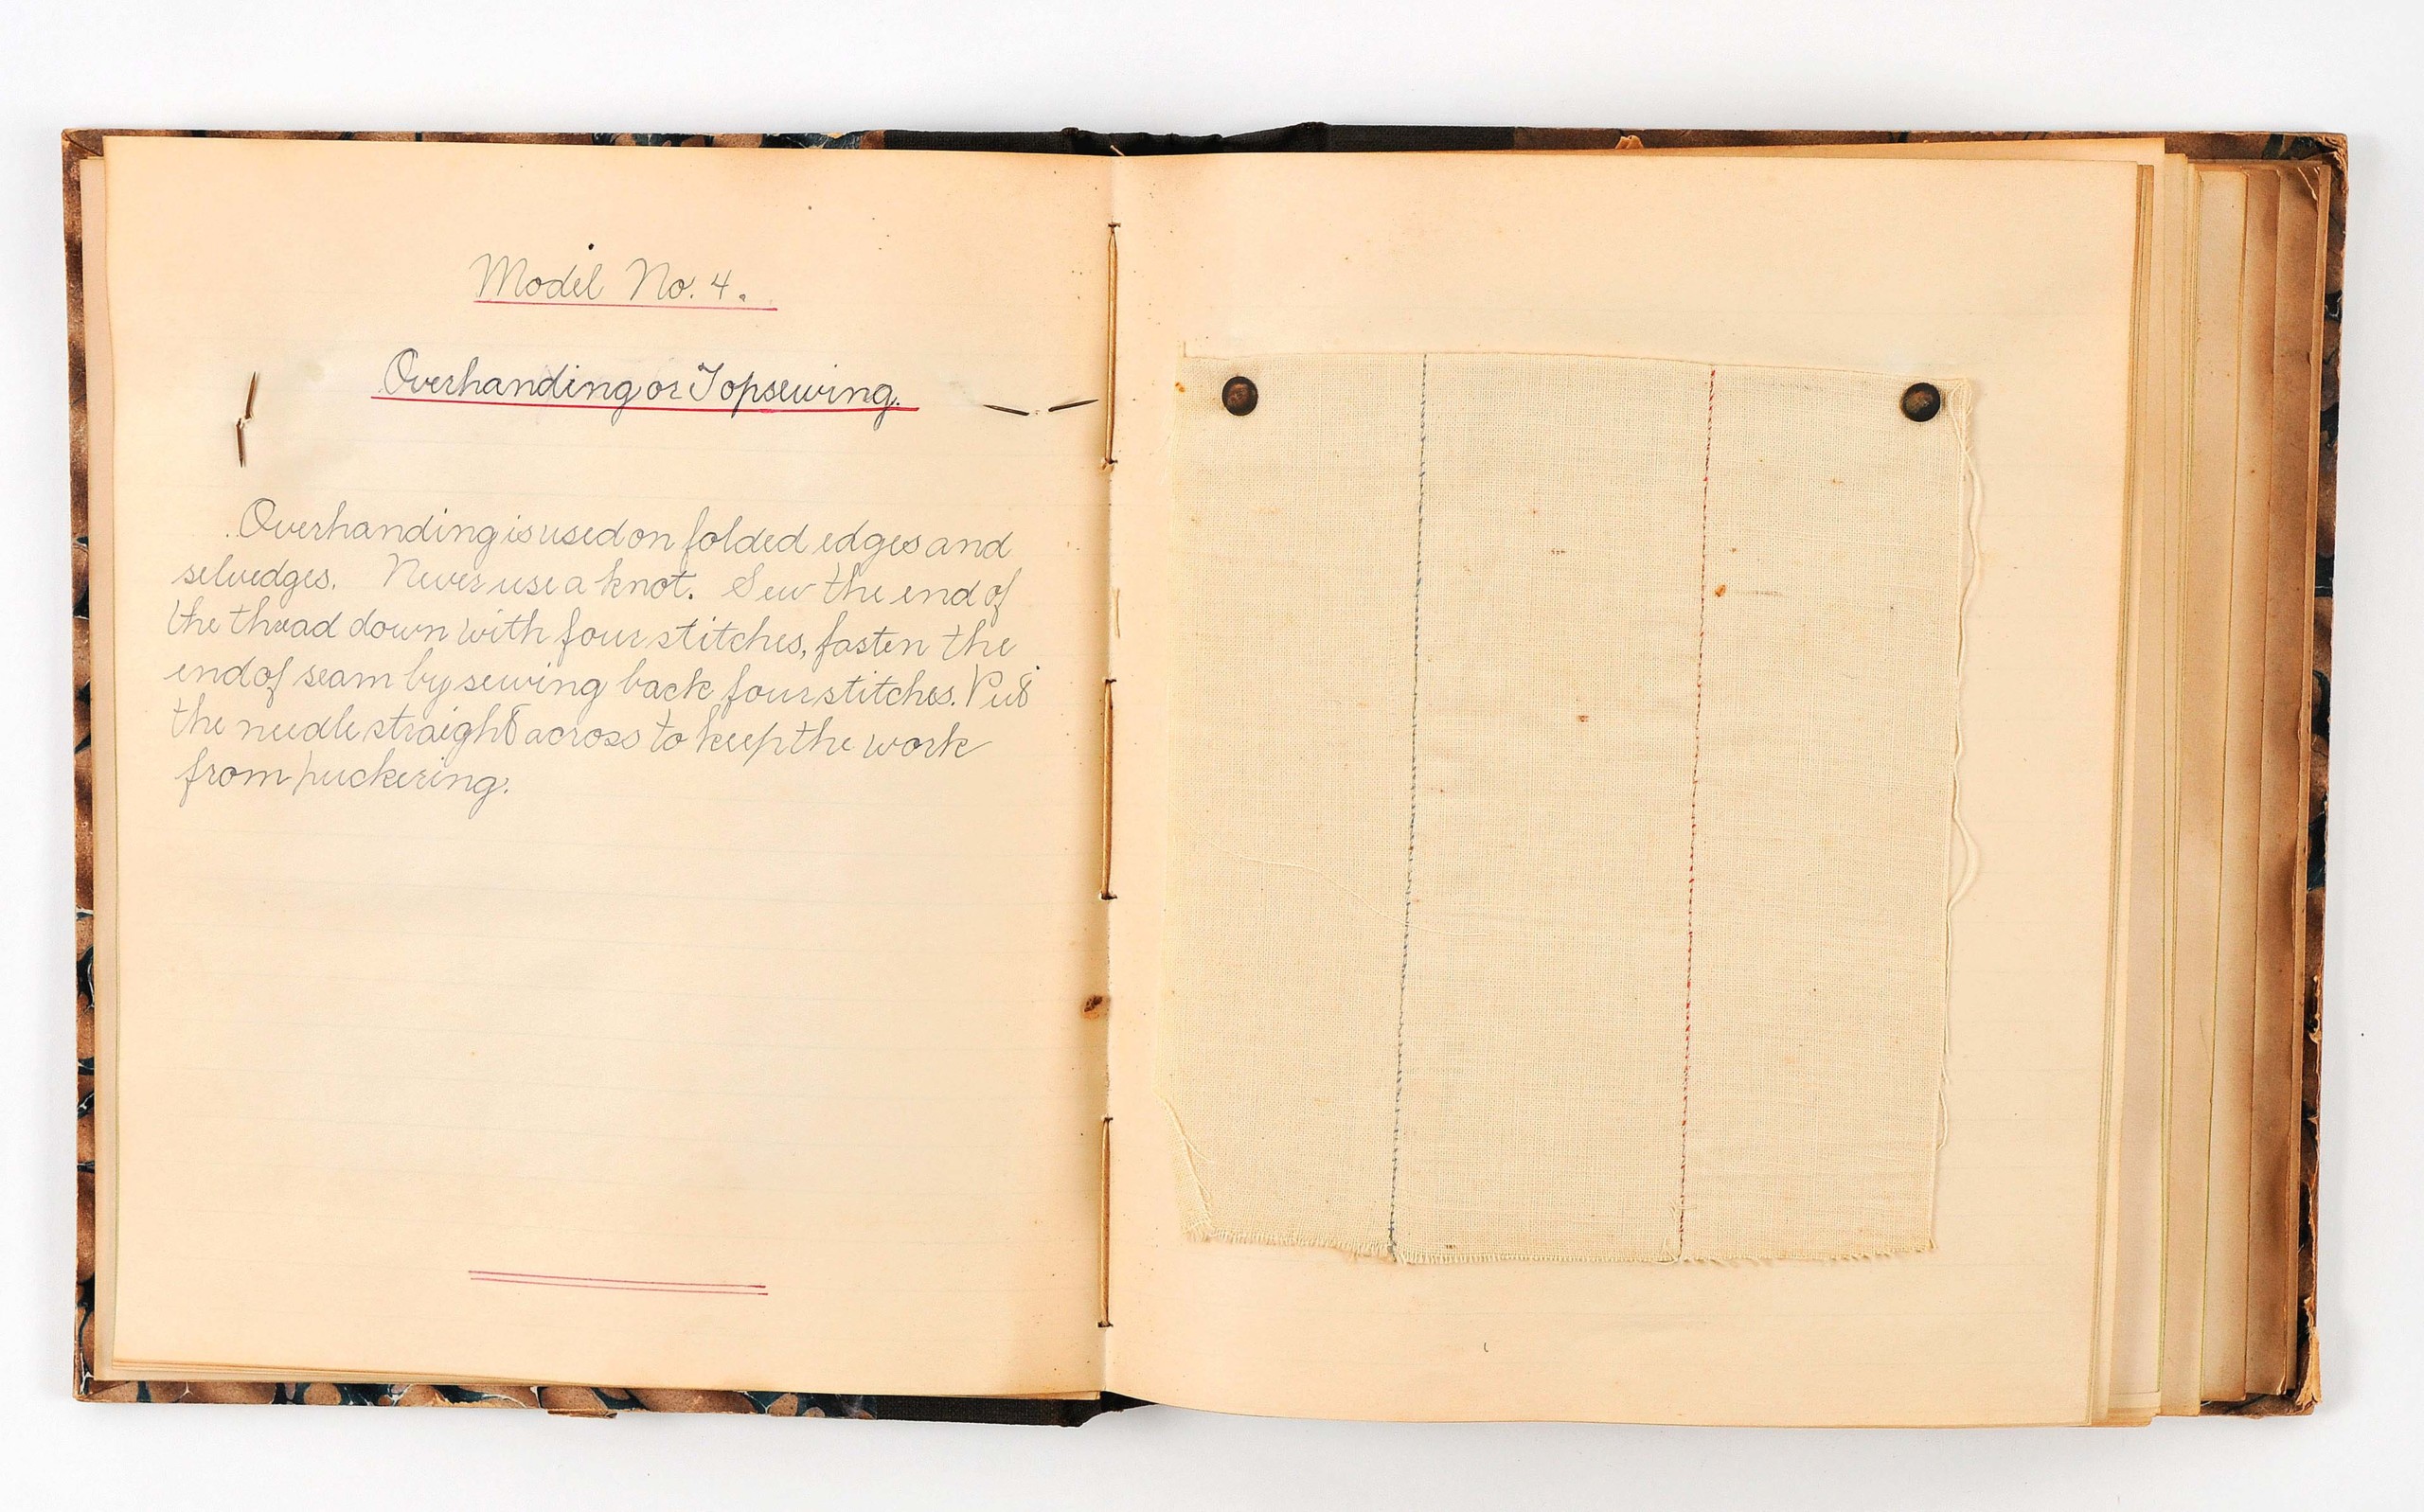 Model No. 4.
Overhanding or Topsewing.
Overhanding is used on folded edges and
selvedges. Never use a knot. Sew the end of
the thread down with four stitches, fasten the
end of seam by sewing back four stitches. Put
the needle straight across to keep the work
from puckering.